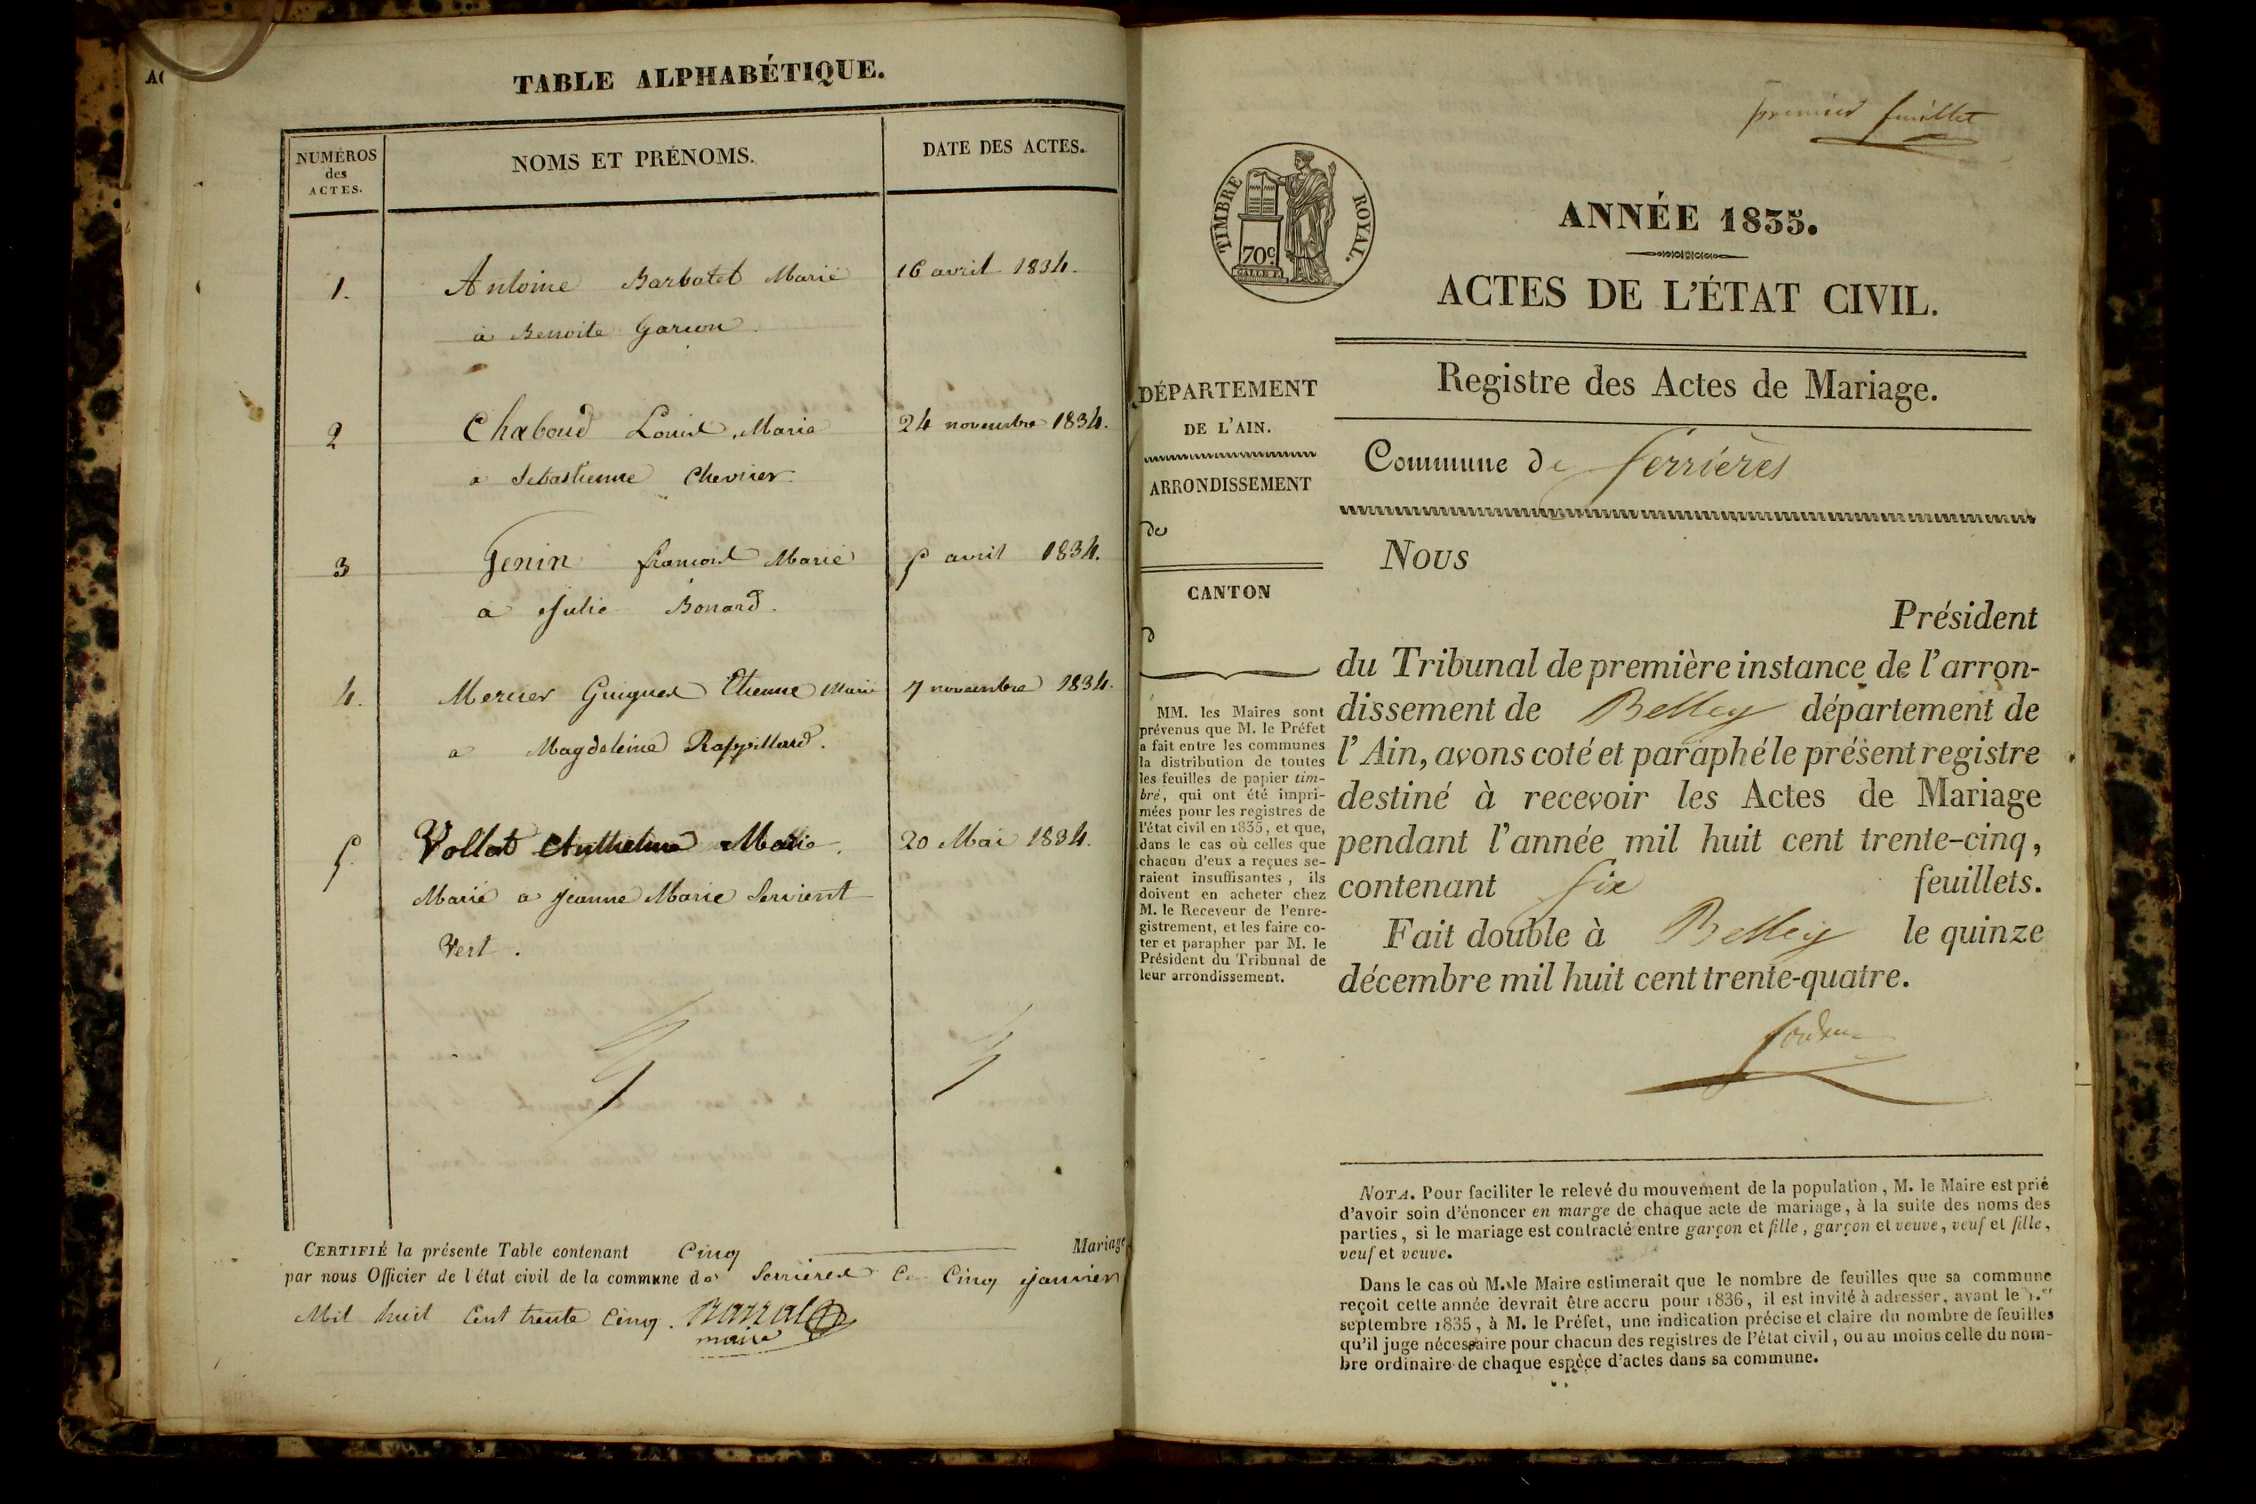 TABLE ALPHABÉTIQUE.
NUMÉROS
des
ACTES.
NOMS ET PRÉNOMS.
DATE DES ACTES.
1. Antoine Barbatet Marié 16 avril 1834.
à Benoite Garcon.
2 Chaboud Louis Marié 24 novembre 1834.
a Sebastienne Chevrier.
3 Genin francois Marié 5 avril 1834.
a Julie Bonard.
4. Mercier Guigues Etienne Marié 7 novembre 1834.
a Magdeleine Rappillard.
5. Vollat Anthelme 20 Mai 1834.
Marié a Jeanne Marie Servient
Vert.
CERTIFIÉ la présente Table contenant Cinq Mariage
par nous Officier de l'état civil de la commune de Serrieres Ce Cinq janvier
Mil huit Cent trente Cinq.
maire
premier feuillet
TIMBRE ROYAL.
70 c.
ANNÉE 1835.
ACTES DE L'ÉTAT CIVIL.
Registre des Actes de Mariage.
Commune de Serrières
DÉPARTEMENT
DE L'AIN.
ARRONDISSEMENT
de
CANTON
d
MM. les Maires sont
prévenus que M. le Préfet
a fait entre les communes
la distribution de toutes
les feuilles de papier tim-
bré, qui ont été impri-
mées pour les registres de
l'état civil en 1835, et que,
dans le cas où celles que
chacun d'eux a reçues se-
raient insuffisantes, ils
doivent en acheter chez
M. le Receveur de l'enre-
gistrement, et les faire co-
ter et parapher par M. le
Président du Tribunal de
leur arrondissement.
Nous
Président
du Tribunal de première instance de l'arron-
dissement de Belley département de
l'Ain, avons coté et paraphé le présent registre
destiné à recevoir les Actes de Mariage
pendant l'année mil huit cent trente-cinq,
contenant Six feuillets.
Fait double à Belley le quinze
décembre mil huit cent trente-quatre.
NOTA. Pour faciliter le relevé du mouvement de la population, M. le Maire est prié
d'avoir soin d'énoncer en marge de chaque acte de mariage, à la suite des noms des
parties, si le mariage est contracté entre garçon et fille, garçon et veuve, veuf et fille,
veuf et veuve.
Dans le cas où M. le Maire estimerait que le nombre de feuilles que sa commune
reçoit cette année devrait être accru pour 1836, il est invité à adresser, avant le 1.er
septembre 1835, à M. le Préfet, une indication précise et claire du nombre de feuilles
qu'il juge nécessaire pour chacun des registres de l'état civil, ou au moins celle du nom-
bre ordinaire de chaque espèce d'actes dans sa commune.